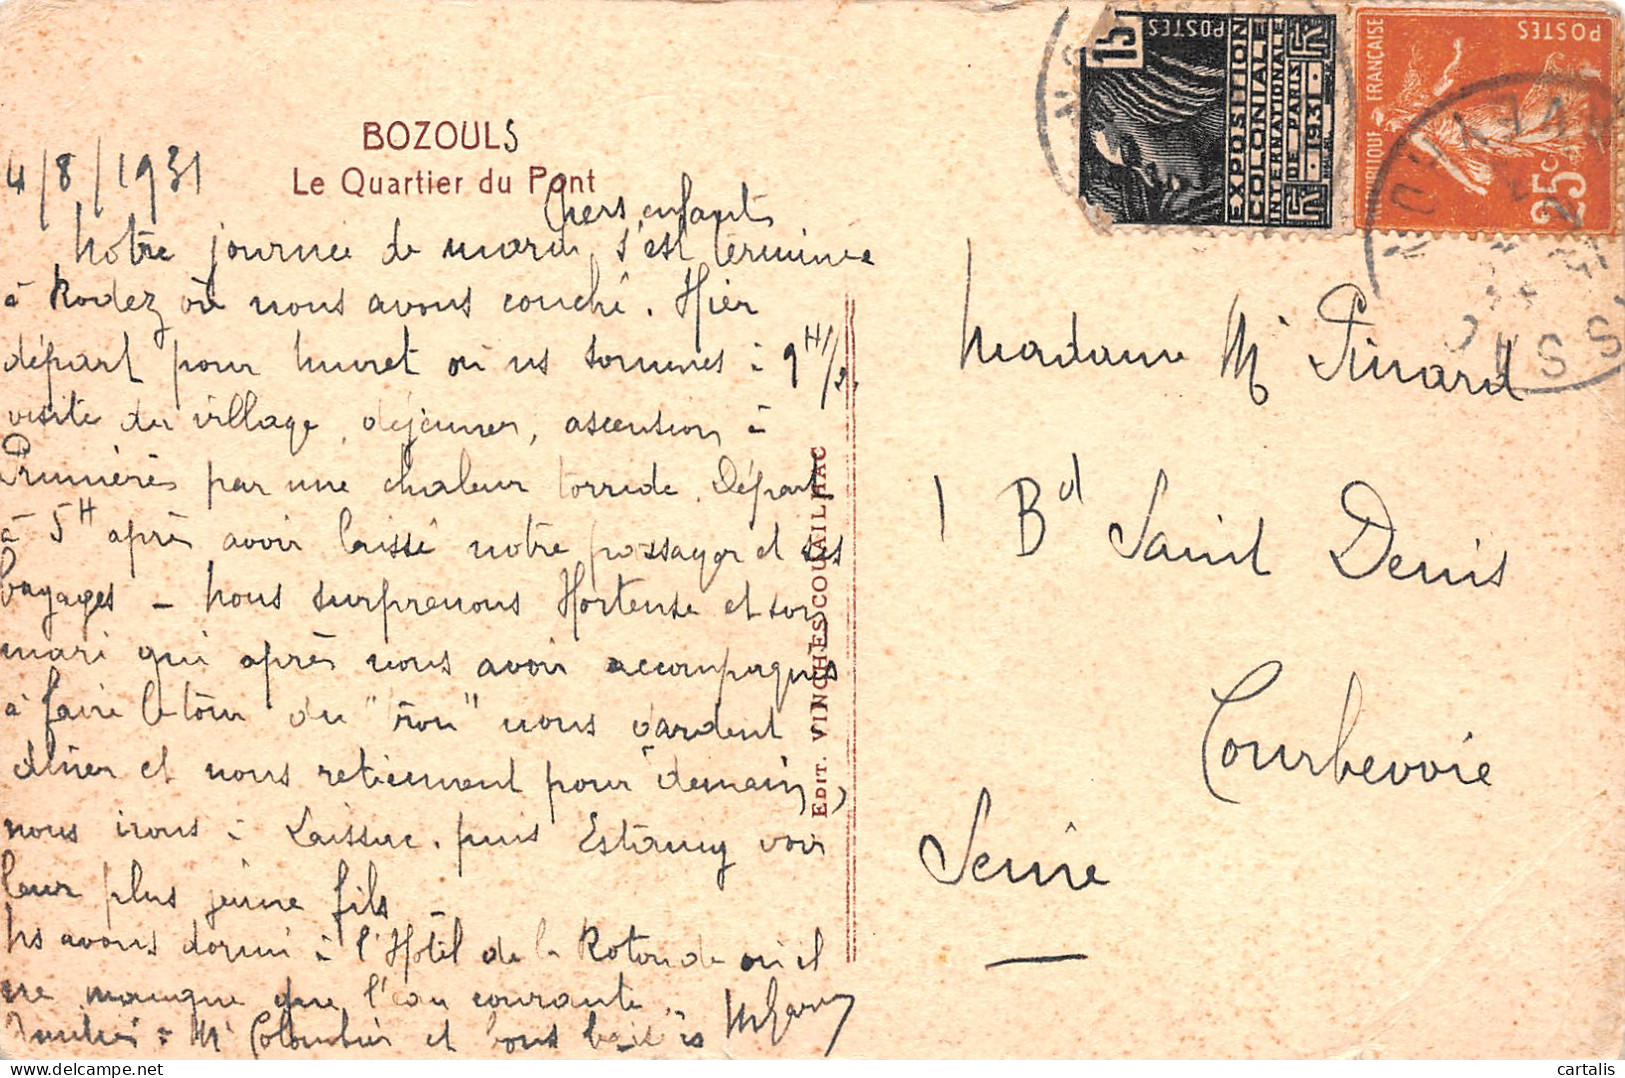 BOZOULS
Le Quartier du Pont
4/8/1931
Chers enfants
Notre journée de mardi s'est terminée
à Rodez où nous avons couché. Hier
départ pour Muret où ns sommes à 9H1/2
visite du village, déjeuner, ascension à
Prunières par une chaleur torride. Départ
à 5H après avoir laissé notre passager et ses
bagages – nous surprenons Hortense et son
mari qui après nous avoir accompagnés
à faire le tour du "trou" nous gardent
dîner et nous retiennent pour demain,
nous irons à Laissac. puis Estaing voir
leur plus jeune fils –
Ns avons dormi à l'Hôtel de la Rotonde où il
ne manque que l'eau courante.
Amitiés à Mr Colombier et bons baisers
EDIT. VINCHES-COUAILHAC
EXPOSITION
COLONIALE
INTERNATIONALE
DE PARIS
1931
15
POSTES
RF
RÉPUBLIQUE FRANÇAISE
POSTES
25c
Madame Mr Pinard
1 Bd Saint Denis
Courbevoie
Seine
delcampe.net
cartalis